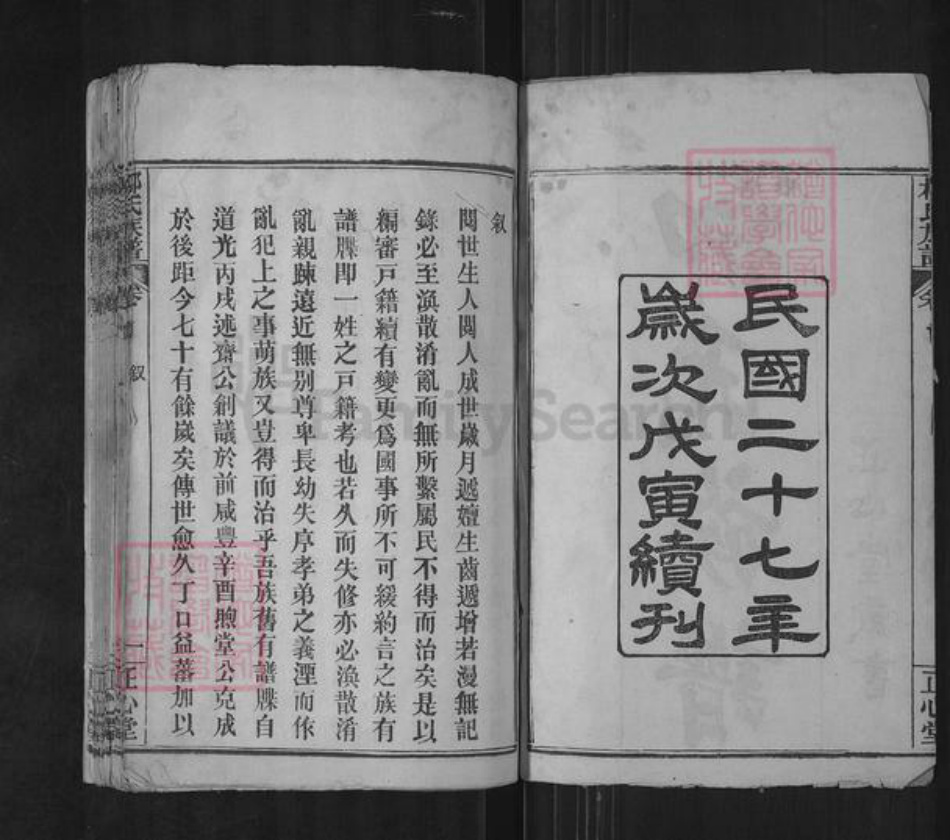 民國二十七年
歲次戊寅續刊
正心堂
叙
閱世生人閱人成世歲月遞嬗生齒遞增若漫無記
錄必至渙散淆亂而無所繫屬民不得而治矣是以
編審戶籍續有變更爲國事所不可緩約言之族有
譜牒即一姓之戶籍考也若久而失修亦必渙散淆
亂親踈遠近無别尊卑長幼失序孝弟之義湮而作
亂犯上之事萌族又豈得而治乎吾族舊有譜牒自
道光丙戌述齋公創議於前咸豐辛酉煦堂公克成
於後距今七十有餘歲矣傳世愈久丁口益蕃加以
氏族譜
叙
一
正心堂
FamilySearch